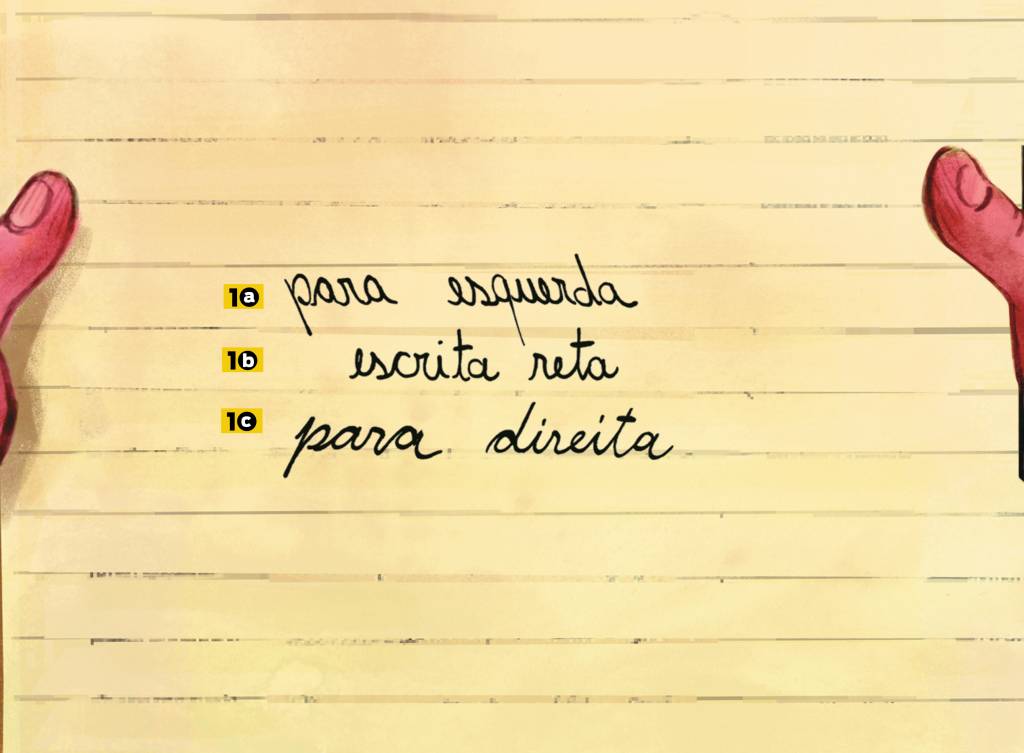 1a para esquerda
1b escrita reta
1c para direita